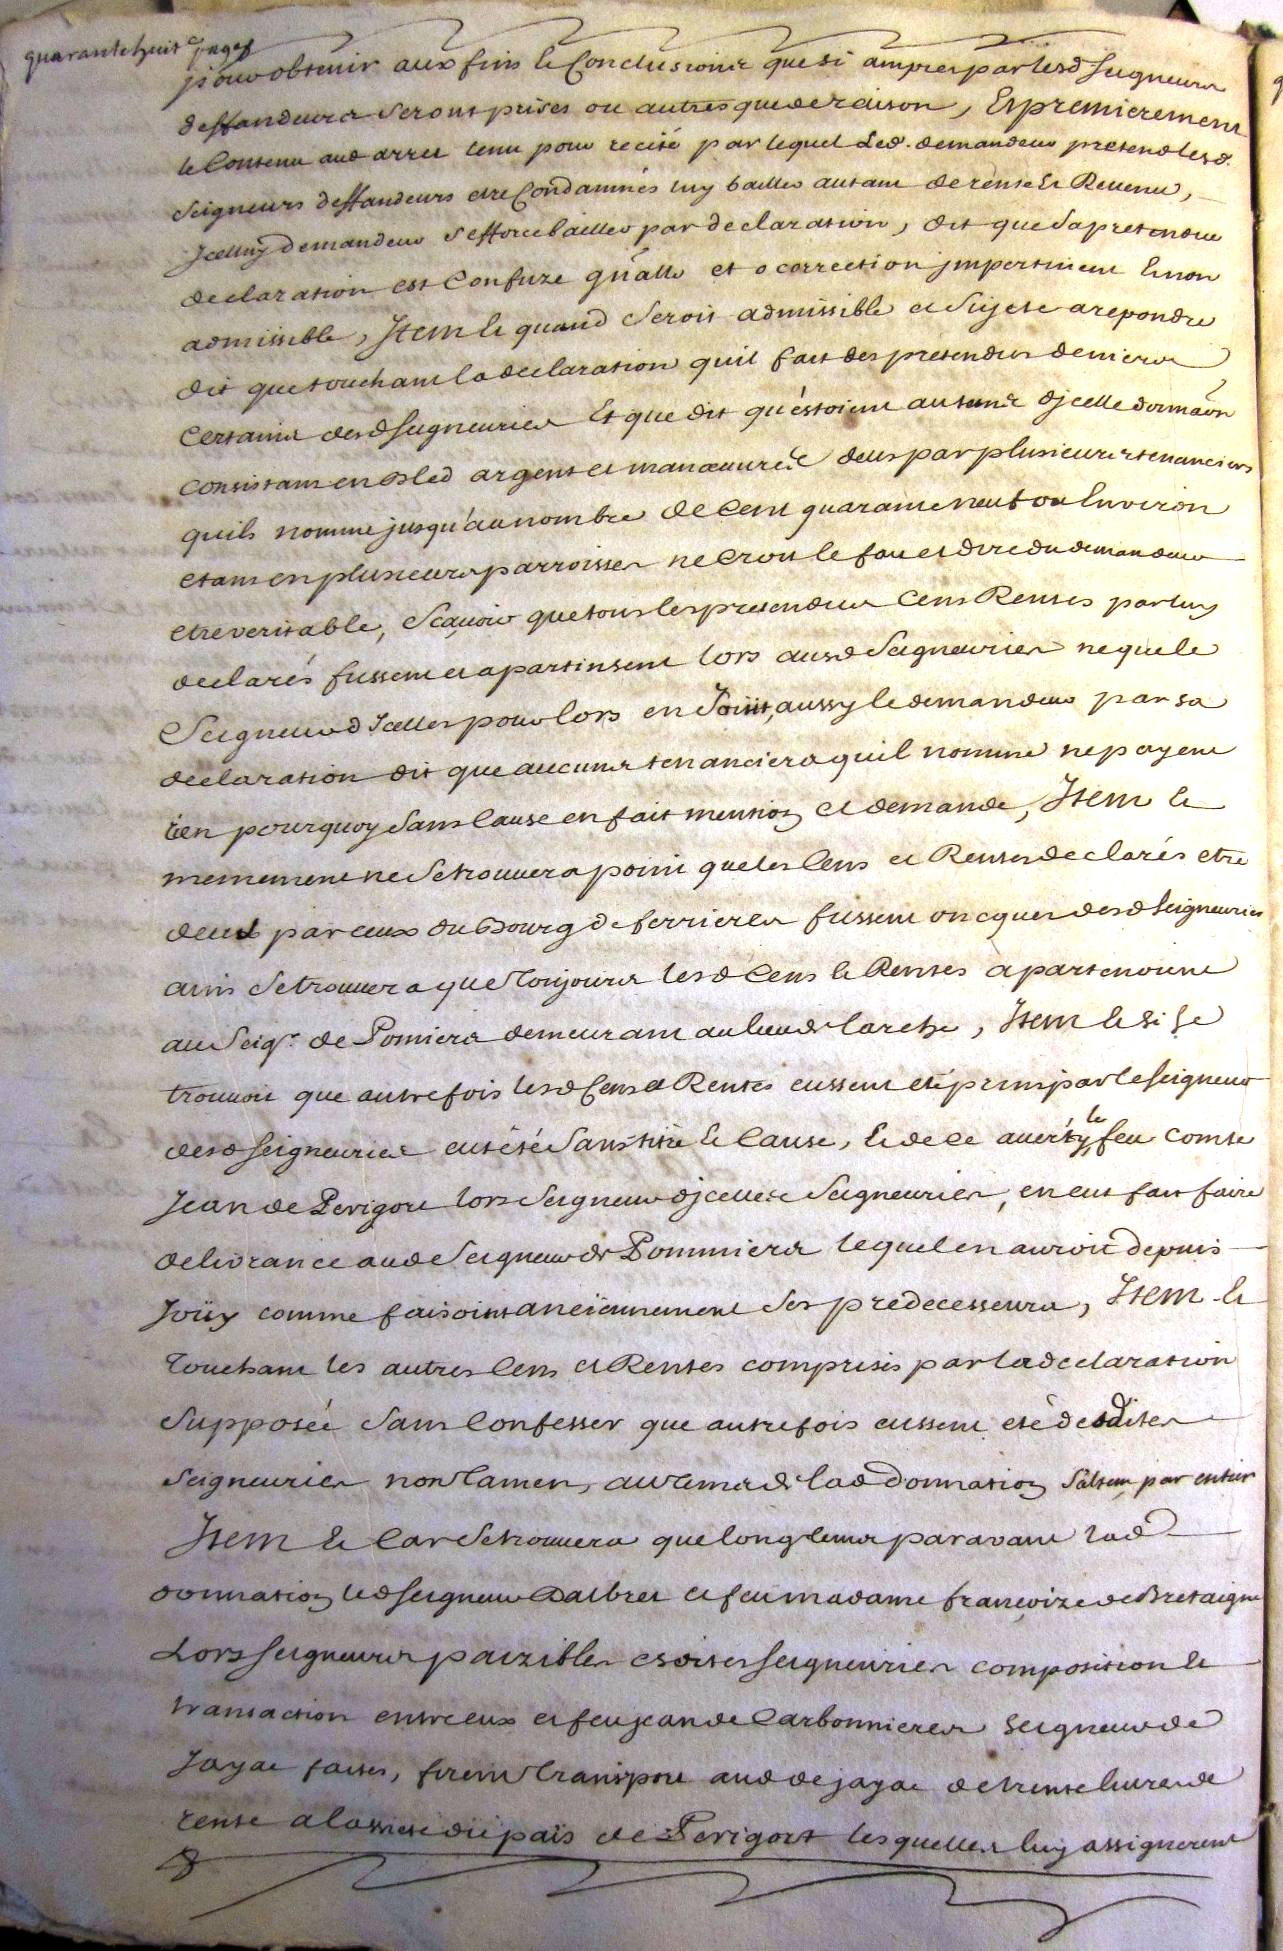 quarantehuit e pages
pour obtenir aux fins & Conclusions que si ampres par lesd Seigneurs
deffandeurs seront prises ou autres que de raison, Et premierement
le Contenu aud arret tenu pour recité par lequel Led. demandeur pretend lesd.
Seigneurs deffandeurs etre Condamnés luy bailler autant de rente & Revenu,
Jcelluy demandeur s'efforce bailler par declaration, dit que sa pretendue
declaration est Confuze gñalle et o correction jmpertinent & non
admissible, Jtem & quand seroit admissible et sujete a repondre
dit que touchant la declaration quil fait des pretendus deniers
Certains desd Seigneuries Et que dit qu'estoient au tems djcelle donnaôn
consistant en bled argent et manœuvre deus par plusieurs tenanciers
quils nomme jusqu'au nombre de Cent quarante neuf ou Environ
etant en plusieurs parroisses ne Croit le fait et dire du demandeur
etre veritable, Sçavoir que tous les pretendus Cens Rentes par luy
declarés fussent et apartinsent lors ausd Seigneuries ne que le
Seigneur d'Jcelles pour lors en Jouit, aussy le demandeur par sa
declaration dit que aucuns tenanciers quil nomme ne payent
rien pourquoy sans Cause en fait mention et demande, Jtem &
memement ne se trouvera point que les Cens et Rentes declarés etre
deus par ceux du Bourg de ferrieres fussent oncques desd Seigneuries
ains se trouvera que Toujours lesd Cens & Rentes apartenoient
au Seigr. de Pomiers demeurant au lieu de larche, Jtem & si se
trouvoit que autrefois lesd Cens et Rentes eussent eté prins par le Seigneur
desd Seigneuries eut été sans titre & Cause, & de ce averty le feu Comte
Jean de Perigort lors Seigneur djcelles Seigneuries, en eut fait faire
delivrance aud Seigneur de Pommiers lequel en auroit depuis
Joüy comme faisoint anciennement ses predecesseurs, Jtem &
Touchant les autres Cens et Rentes comprisis par lad declaration
Supposée sans Confesser que autrefois eussent eté desdites
Seigneuries non Tamen, au tems de lad donnation par entier
Jtem & Car se trouvera que long tems paravant lad
donnation led Seigneur Dalbret et feu madame françoize de Bretaigne
Lors Seigneurs paizibles esdites Seigneuries composition &
transaction entre eux et feu jean de Carbonnieres Seigneur de
Jayac faites, firent Transport aud de jayac de trente livres de
rente a lassiete du païs de Perigort lesquelles luy assignerent